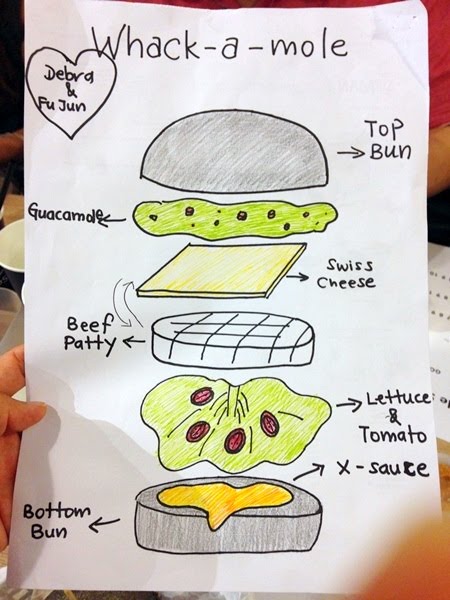 Whack-a-mole
Debra
&
Fu Jun
Top
Bun
Guacamole
Swiss
Cheese
Beef
Patty
Lettuce
&
Tomato
X-sauce
Bottom
Bun